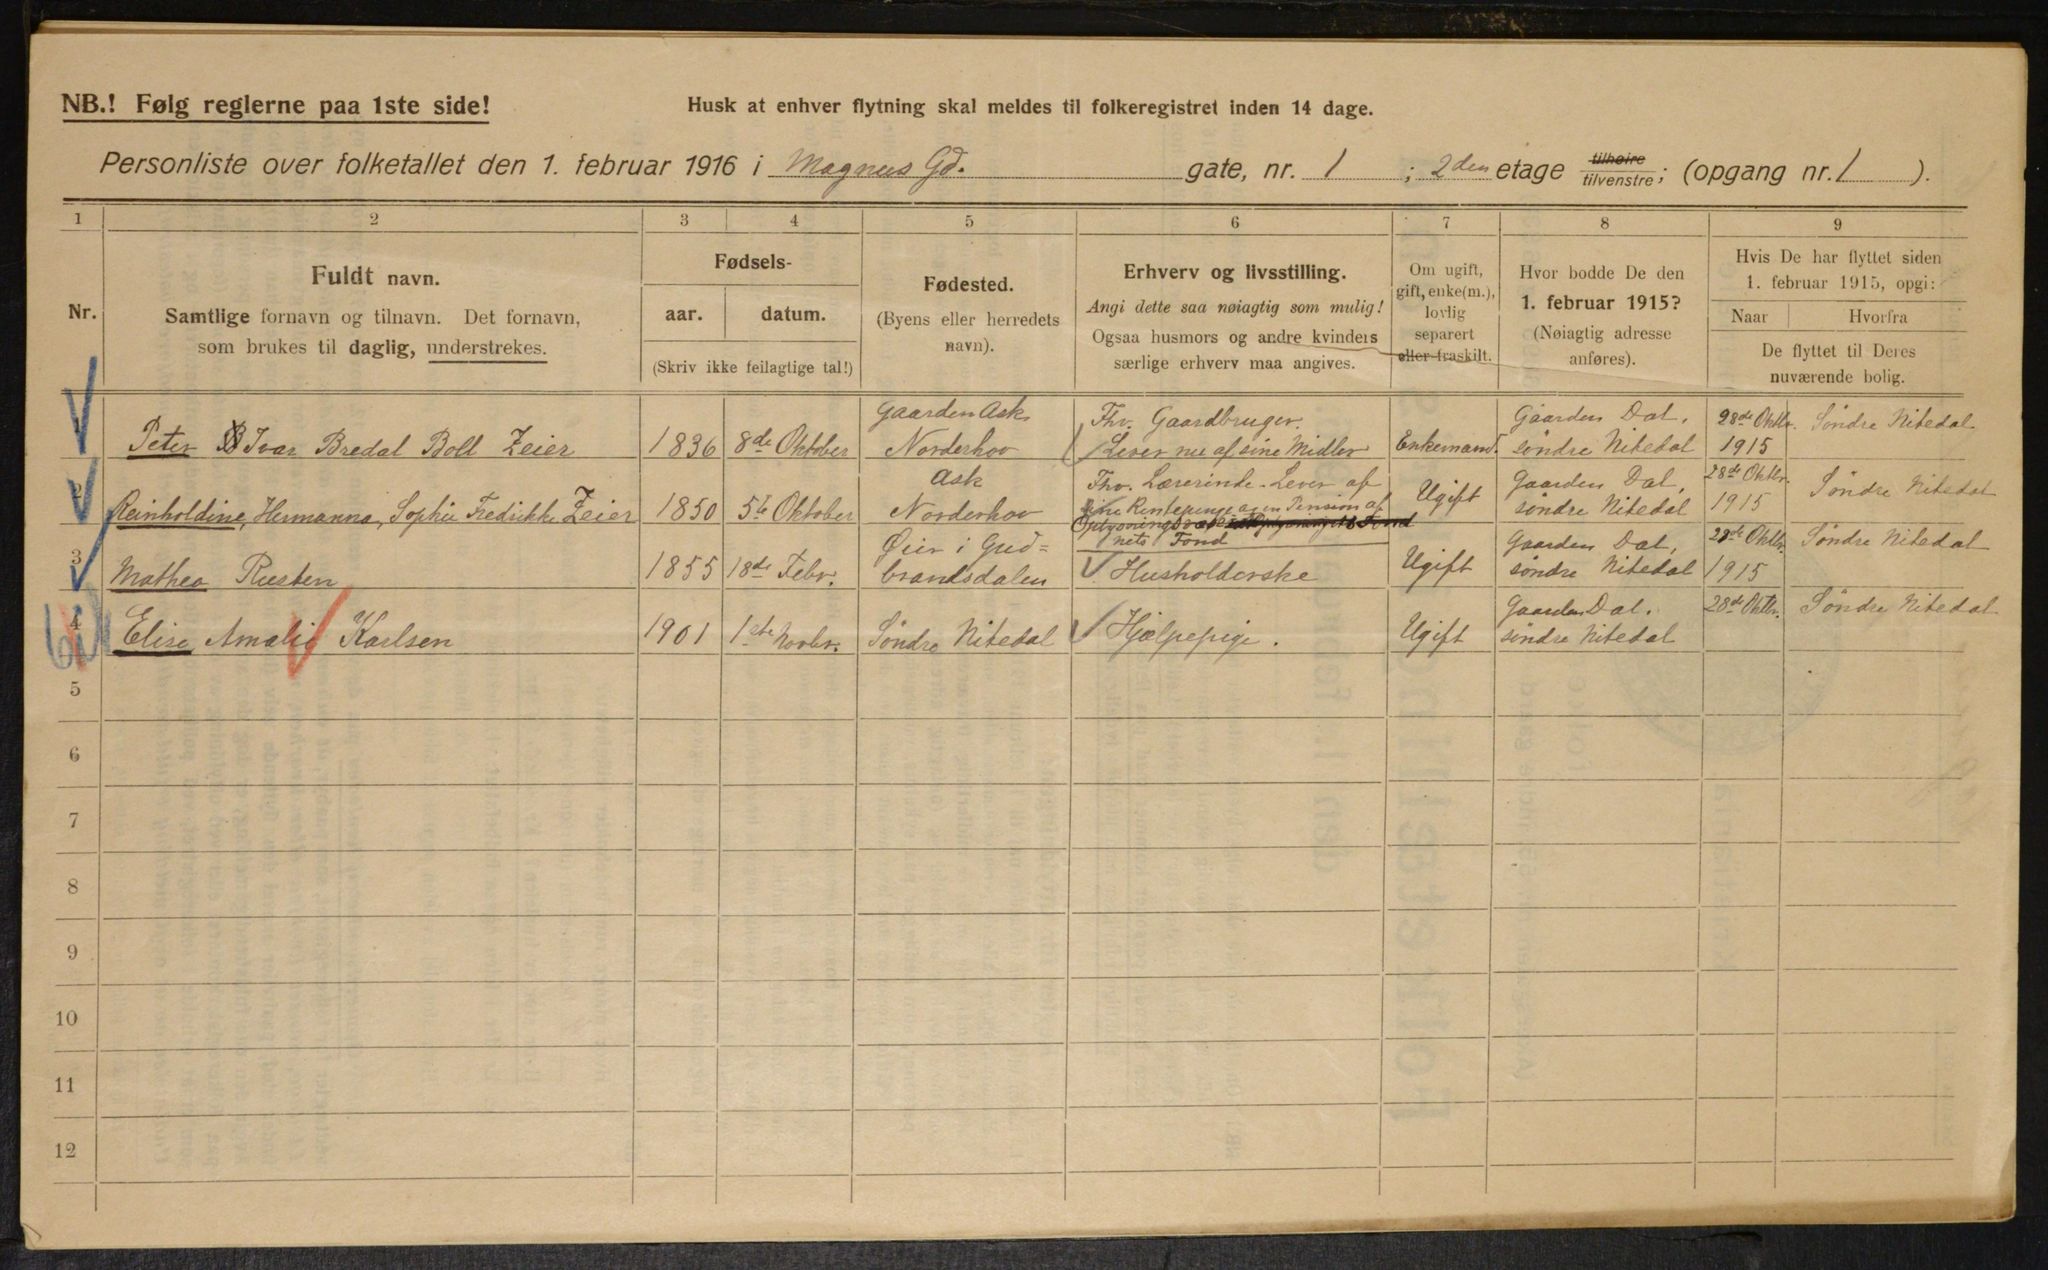 NB.! Følg reglerne paa 1ste side!
Husk at enhver flytning skal meldes til folkeregistret inden 14 dage.
Personliste over folketallet den 1. februar 1916 i Magnus Gd. gate, nr. 1 ; 2den etage tilhøire tilvenstre; (opgang nr. 1 ).
1 2 3 4 5 6 7 8 9
Nr.
Fuldt navn.
Samtlige fornavn og tilnavn. Det fornavn,
som brukes til daglig, understrekes.
Fødsels-
aar. datum.
(Skriv ikke feilagtige tal!)
Fødested.
(Byens eller herredets
navn).
Erhverv og livsstilling.
Angi dette saa nøiagtig som mulig!
Ogsaa husmors og andre kvinders
særlige erhverv maa angives.
Om ugift,
gift, enke(m.),
lovlig
separert
eller fraskilt.
Hvor bodde De den
1. februar 1915?
(Nøiagtig adresse
anføres).
Hvis De har flyttet siden
1. februar 1915, opgi:
Naar Hvorfra
De flyttet til Deres
nuværende bolig.
Gaarden Ask Fhv. Gaardbruger. Gaarden Dal, 28de Oktbr. Søndre Nitedal
1 Peter Ivar Bredal Boll Zeier 1836 8de Oktober Norderhov Lever nu af sine Midler Enkemand. søndre Nitedal 1915
Ask Fhv. Lærerinde. Lever af Gaarden Dal, 28de Oktbr. Søndre Nitedal
2 Reinholdine, Hermanna, Sophie Fredrikke Zeier 1850 5te Oktober Norderhov sine Rentepenge og en Pension af Ugift søndre Nitedal 1915
Fond
nets Fond
Øier i Gud= Gaarden Dal, 28de Oktbr. Søndre Nitedal
3 Mathea Rusten 1855 18de Febr. brandsdalen Husholderske Ugift søndre Nitedal 1915
Gaarden Dal. 28de Oktbr. Søndre Nitedal
4 Elise Amalie Karlsen 1901 1ste Novbr. Søndre Nitedal Hjælpepige. Ugift søndre Nitedal
5
6
7
8
9
10
11
12